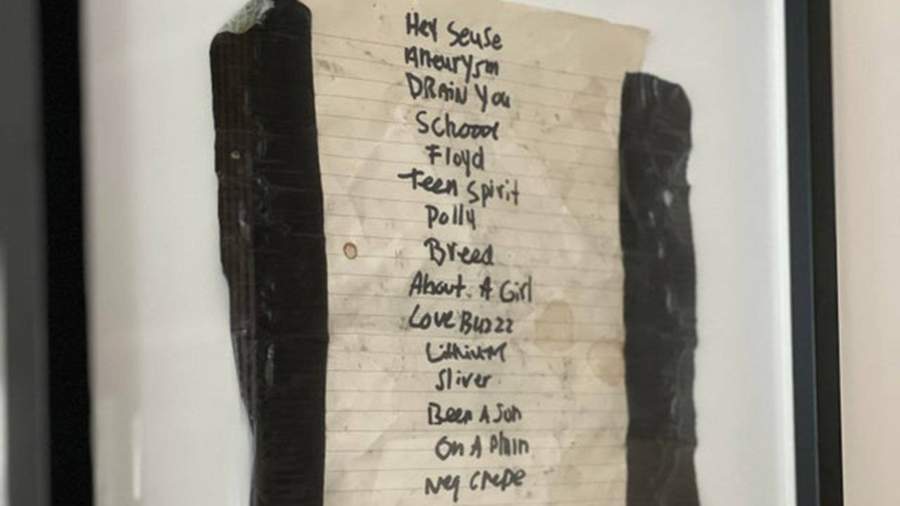 Hey Seuse
Aneurysm
DRAiN You
Schoool
Floyd
Teen Spirit
Polly
Breed
About A Girl
Love Buzz
Lithium
Sliver
Been A Son
On A Plain
Neg Creepe